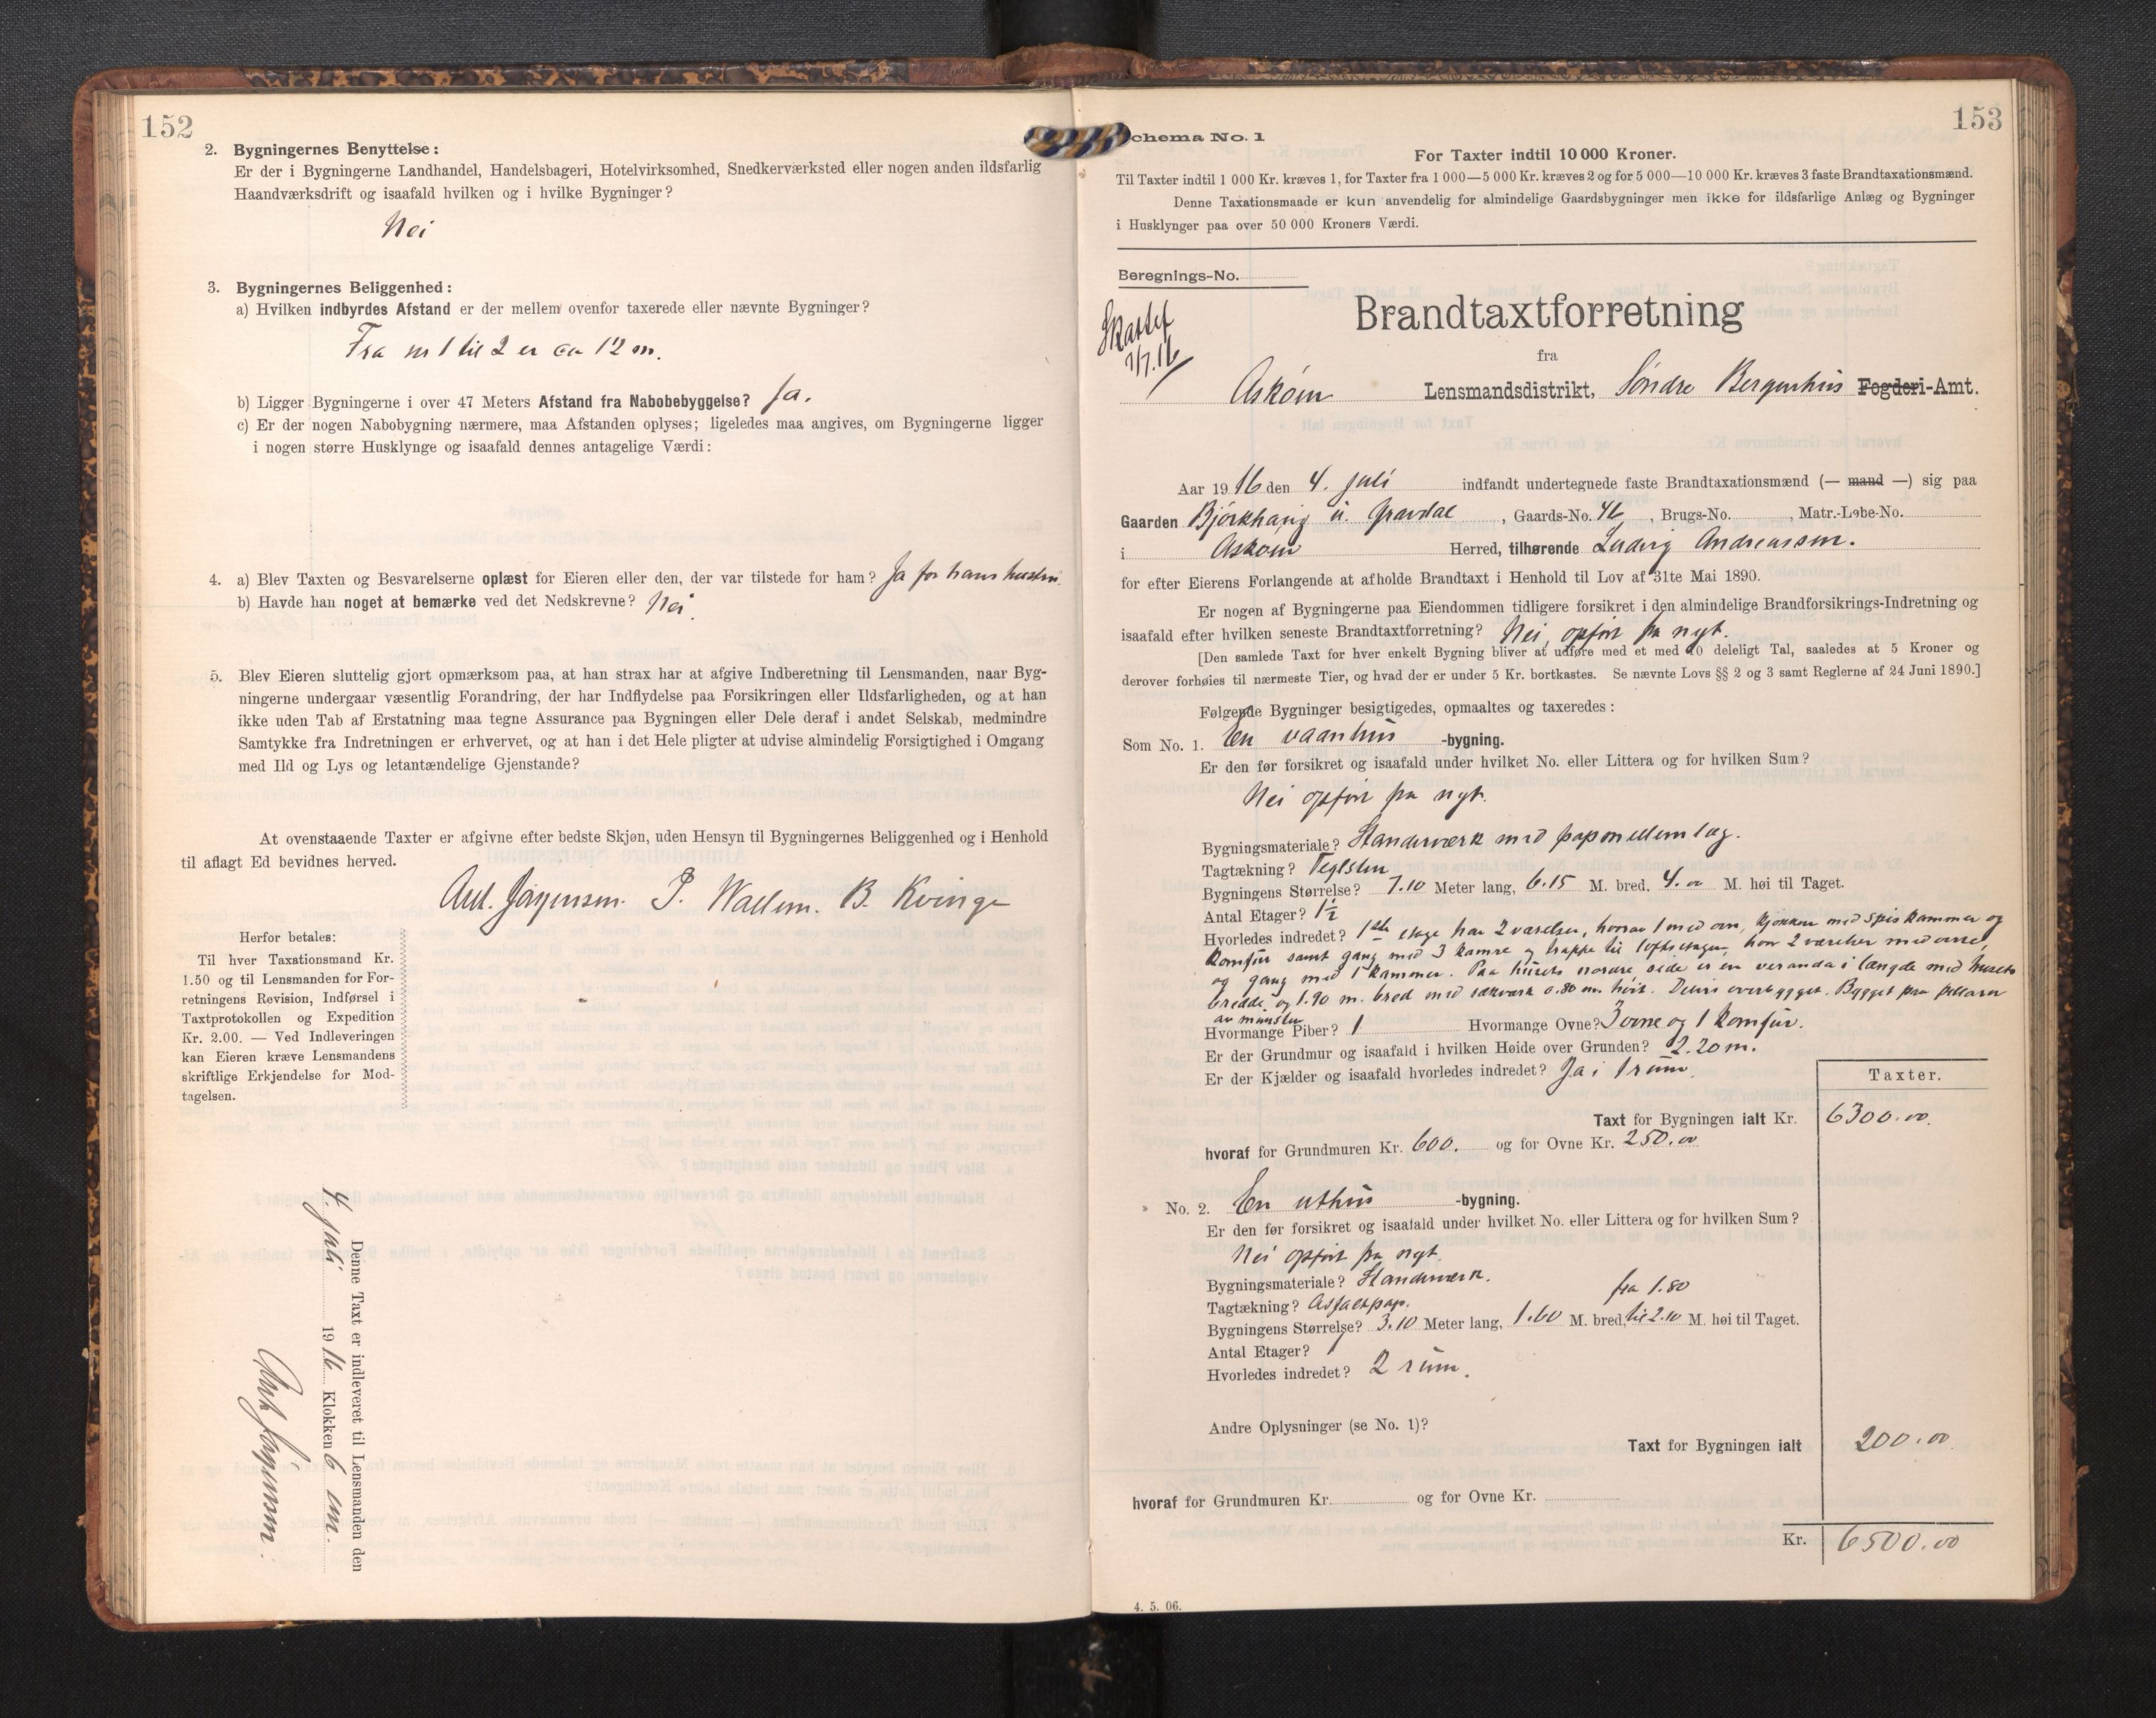 152
2. Bygningernes Benyttelse:
Er der i Bygningerne Landhandel, Handelsbageri, Hotelvirksomhed, Snedkerværksted eller nogen anden ildsfarlig
Haandværksdrift og isaafald hvilken og i hvilke Bygninger?
Nei
3. Bygningernes Beliggenhed:
a) Hvilken indbyrdes Afstand er der mellem ovenfor taxerede eller nævnte Bygninger?
Fra nr 1 til 2 er ca 12 m.
b) Ligger Bygningerne i over 47 Meters Afstand fra Nabobebyggelse? Ja.
c) Er der nogen Nabobygning nærmere, maa Afstanden oplyses; ligeledes maa angives, om Bygningerne ligger
i nogen større Husklynge og isaafald dennes antagelige Værdi:
4. a) Blev Taxten og Besvarelserne oplæst for Eieren eller den, der var tilstede for ham? Ja for hans hustru.
b) Havde han noget at bemærke ved det Nedskrevne? Nei.
5. Blev Eieren sluttelig gjort opmærksom paa, at han strax har at afgive Indberetning til Lensmanden, naar Byg-
ningerne undergaar væsentlig Forandring, der har Indflydelse paa Forsikringen eller Ildsfarligheden, og at han
ikke uden Tab af Erstatning maa tegne Assurance paa Bygningen eller Dele deraf i andet Selskab, medmindre
Samtykke fra Indretningen er erhvervet, og at han i det Hele pligter at udvise almindelig Forsigtighed i Omgang
med Ild og Lys og letantændelige Gjenstande?
At ovenstaaende Taxter er afgivne efter bedste Skjøn, uden Hensyn til Bygningernes Beliggenhed og i Henhold
til aflagt Ed bevidnes herved.
Ant. Jørgensen. P. Wallem. B. Kvinge
Herfor betales:
Til hver Taxationsmand Kr.
1.50 og til Lensmanden for For-
retningens Revision, Indførsel i
Taxtprotokollen og Expedition
Kr. 2.00. — Ved Indleveringen
kan Eieren kræve Lensmandens
skriftlige Erkjendelse for Mod-
tagelsen.
Denne Taxt er indleveret til Lensmanden den
4. juli 1916 Klokken 6 em.
Ant Jørgensen.
153
chema No. 1
For Taxter indtil 10 000 Kroner.
Til Taxter indtil 1 000 Kr. kræves 1, for Taxter fra 1 000—5 000 Kr. kræves 2 og for 5 000—10 000 Kr. kræves 3 faste Brandtaxationsmænd.
Denne Taxationsmaade er kun anvendelig for almindelige Gaardsbygninger men ikke for ildsfarlige Anlæg og Bygninger
i Husklynger paa over 50 000 Kroners Værdi.
Beregnings-No.
7/7.16
Brandtaxtforretning
fra
Askøen Lensmandsdistrikt, Søndre Bergenhus Fogderi-Amt.
Aar 1916 den 4. juli indfandt undertegnede faste Brandtaxationsmænd (— mand —) sig paa
Gaarden Bjørkhaug u. Gravdal, Gaards-No. 46, Brugs-No. , Matr.-Løbe-No.
i Askøen Herred, tilhørende Ludvig Andreassen.
for efter Eierens Forlangende at afholde Brandtaxt i Henhold til Lov af 31te Mai 1890.
Er nogen af Bygningerne paa Eiendommen tidligere forsikret i den almindelige Brandforsikrings-Indretning og
isaafald efter hvilken seneste Brandtaxtforretning? Nei, opført fra nyt.
[Den samlede Taxt for hver enkelt Bygning bliver at udføre med et med 10 deleligt Tal, saaledes at 5 Kroner og
derover forhøies til nærmeste Tier, og hvad der er under 5 Kr. bortkastes. Se nævnte Lovs §§ 2 og 3 samt Reglerne af 24 Juni 1890.]
Følgende Bygninger besigtigedes, opmaaltes og taxeredes:
Som No. 1. En vaanhus -bygning.
Er den før forsikret og isaafald under hvilket No. eller Littera og for hvilken Sum?
Nei opført fra nyt.
Bygningsmateriale? Standerværk med papmellemlæg.
Tagtækning? Teglsten
Bygningens Størrelse? 7.10 Meter lang, 6.15 M. bred, 4.00 M. høi til Taget.
Antal Etager? 1½
Hvorledes indredet? 1ste etage har 2 værelser, hvorav 1 med ovn, kjøkken med spiskammer og
komfur samt gang med 3 kamre og trappe til loftsetagen, hvor 2 værelser med ovne,
og gang med 1 kammer. Paa husets nordre side er en veranda i længde med husets
bredde og 1.90 m. bred med rækværk 0.80 m. høit. Delvis overbygget. Bygget paa pillarer
av mursten
Hvormange Piber? 1 Hvormange Ovne? 3 ovne og 1 komfur.
Er der Grundmur og isaafald i hvilken Høide over Grunden? 2.20 m.
Er der Kjælder og isaafald hvorledes indredet? Ja i 1 rum.
Taxter.
Taxt for Bygningen ialt Kr. 6300.00.
hvoraf for Grundmuren Kr. 600. og for Ovne Kr. 250.00
» No. 2. En uthus -bygning.
Er den før forsikret og isaafald under hvilket No. eller Littera og for hvilken Sum?
Nei opført fra nyt.
Bygningsmateriale? Standerværk.
Tagtækning? Asfaltpap.
fra 1.80
Bygningens Størrelse? 3.10 Meter lang, 1.60 M. bred, til 2.10 M. høi til Taget.
Antal Etager? 1
Hvorledes indredet? 2 rum.
Andre Oplysninger (se No. 1)?
Taxt for Bygningen ialt 200.00.
hvoraf for Grundmuren Kr. og for Ovne Kr.
Kr. 6500.00
4. 5. 06.